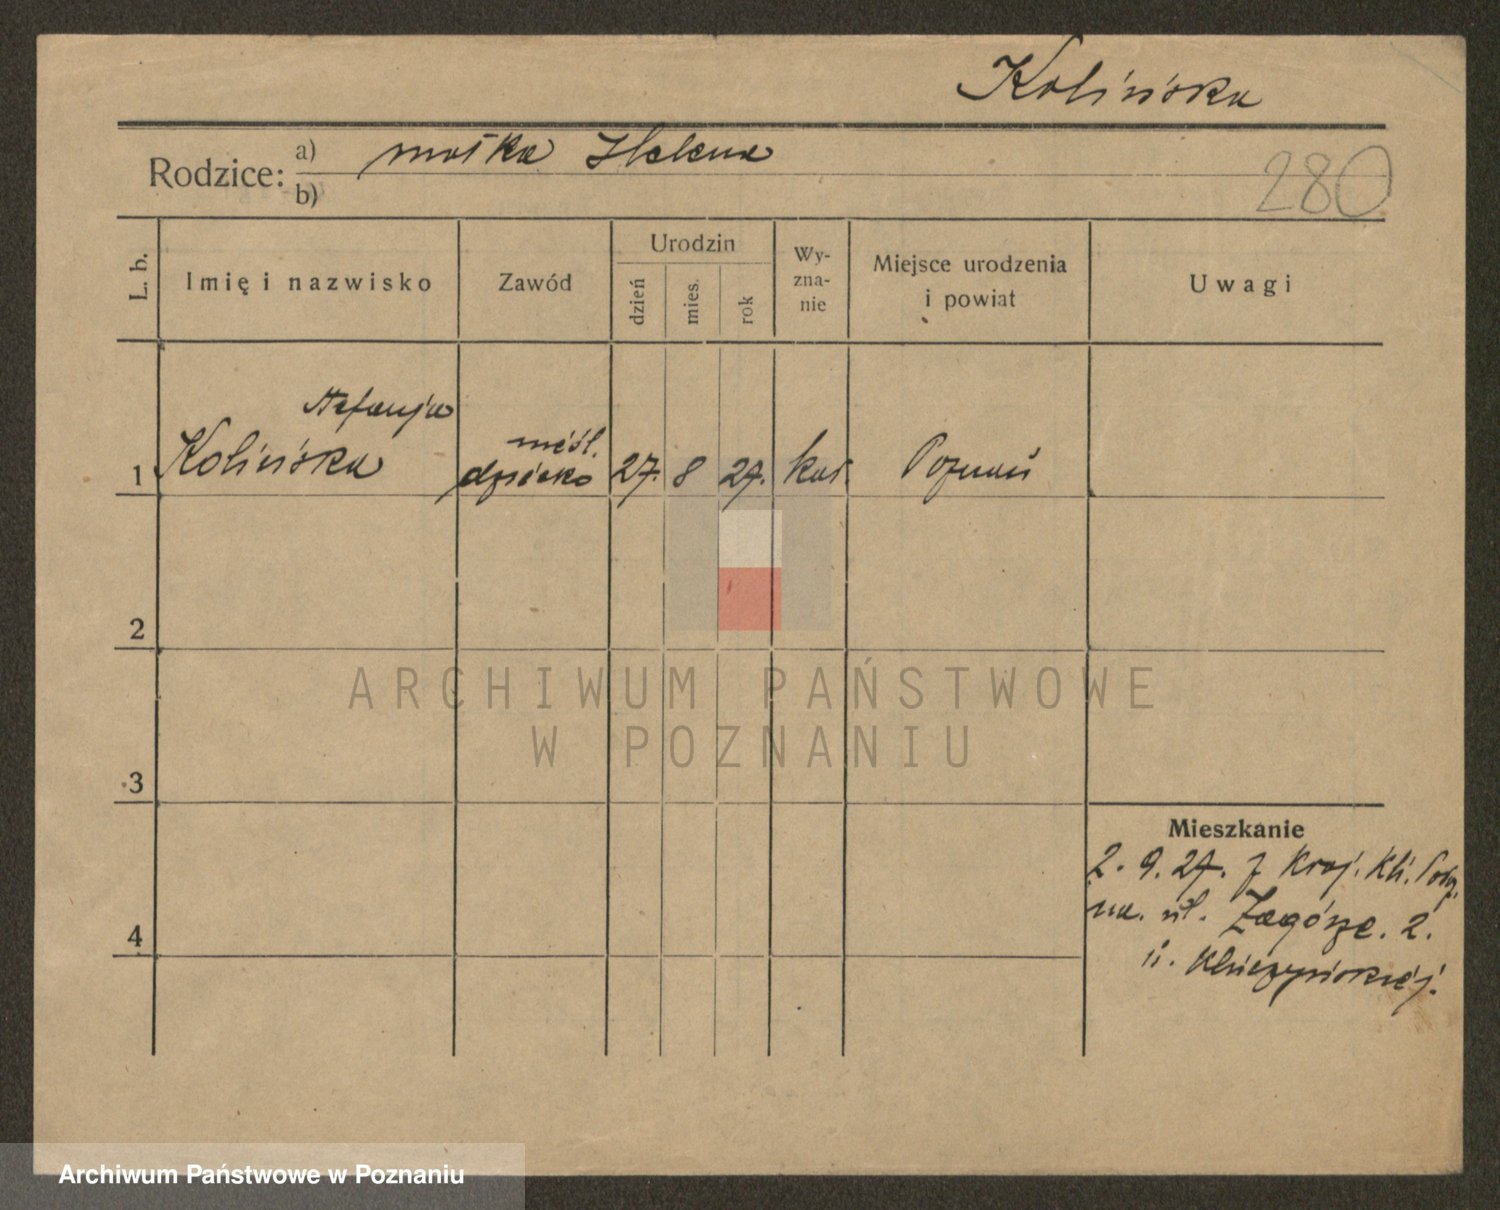 Kolińska
Rodzice: a) matka Helena
b)
280
L. b.
Imię i nazwisko
Zawód
Urodzin
dzień
mies.
rok
Wy-
zna-
nie
Miejsce urodzenia
i powiat
Uwagi
Stefanja
1 Kolińska
nieśl.
dziecko
27. 8 27. kat. Poznań
2
3
4
ARCHIWUM PAŃSTWOWE
W POZNANIU
Mieszkanie
2. 9. 27. z Kraj. Kli. Położ.
na. ul. Zagórze. 2.
Archiwum Państwowe w Poznaniu